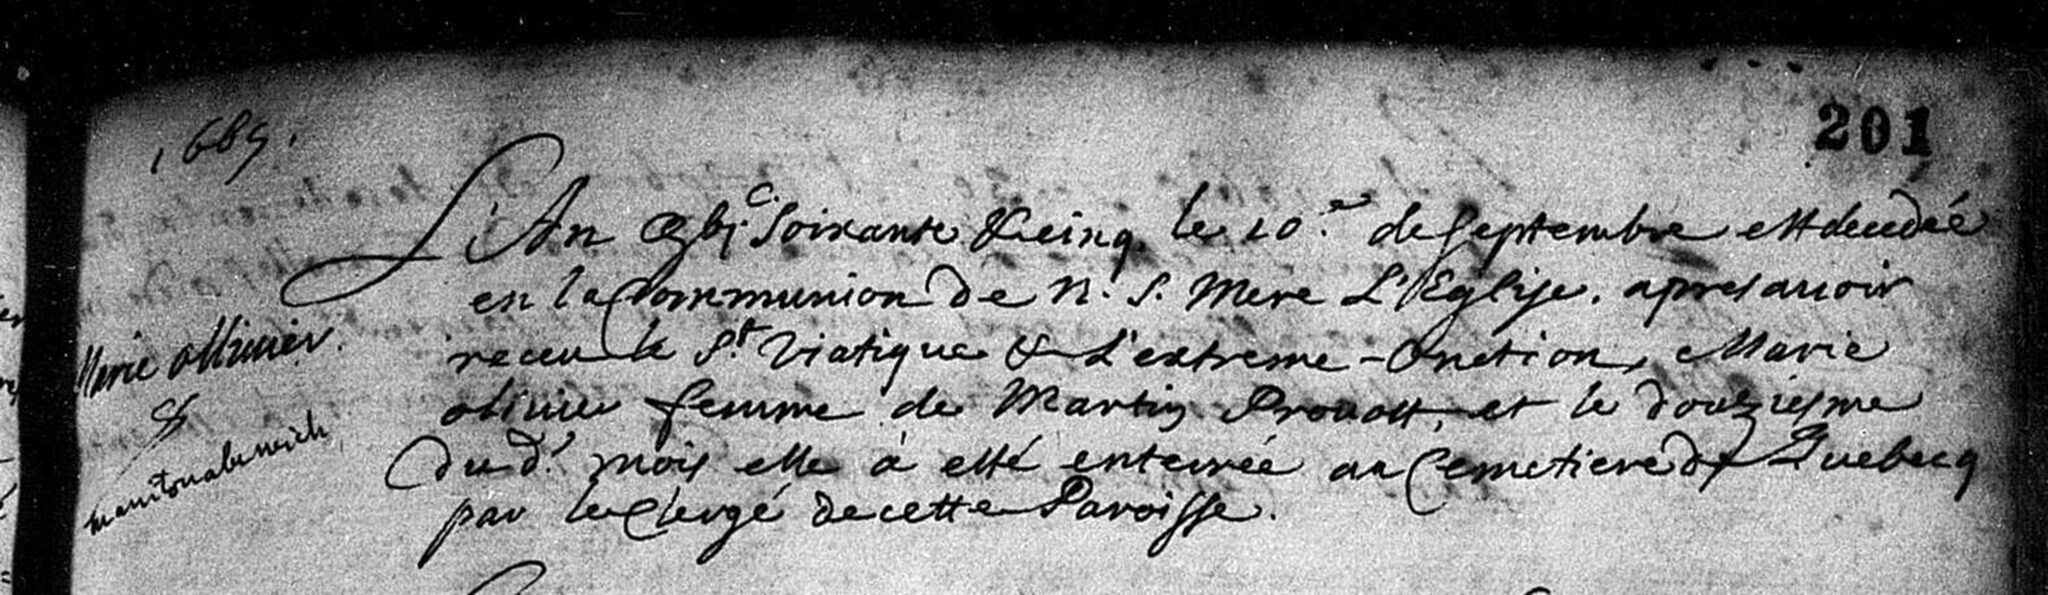 1665.
201
L'An Gbj.c Soixante & cinq, le 10.e de Septembre est decedée
en la Communion de N. S. Mere L'Eglise. apres auoir
receu le S.t Viatique & L'extreme-Onction, Marie
oliuier femme de Martin Prouost, et le douziesme
du d.t mois elle à esté enterrée au Cemetiere de Quebecq
par le Clergé de cette Paroisse.
Marie ollivier.
&
manitouabewich